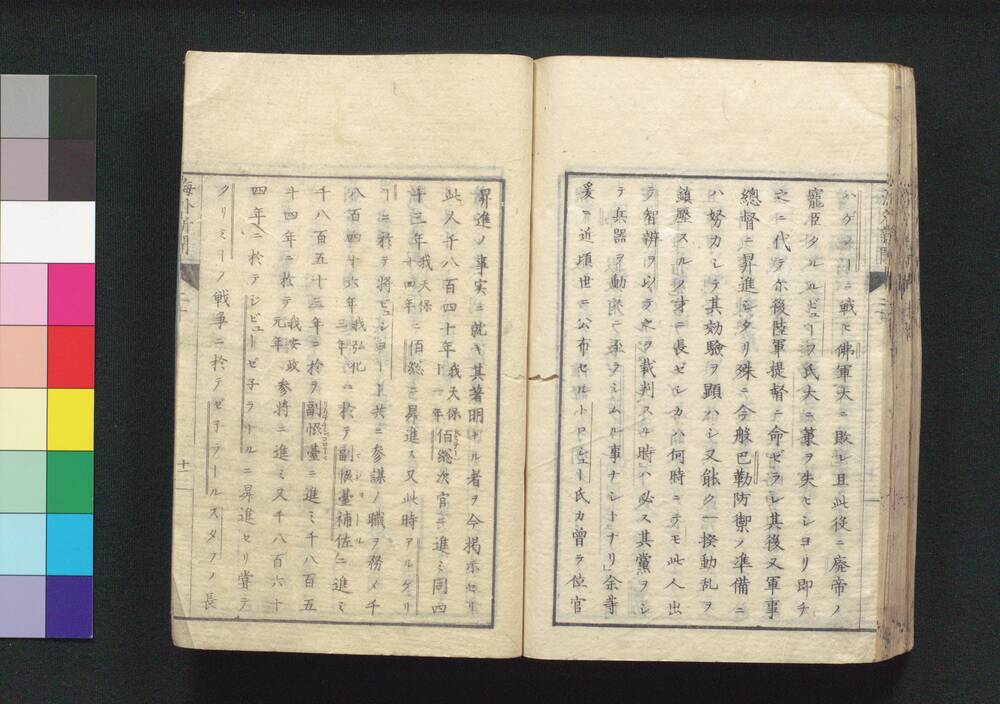 ニ戦ヒ佛軍大ニ敗レ且此役ニ廃帝ノ
寵臣タルルビューフ氏大ニ軍ヲ失ヒシヨリ即チ
之ニ代テ尓後陸軍提督ニ命ゼラレ其後又軍事
總督ニ昇進シタリ殊ニ今般巴勒防禦ノ準備ニ
ハ努力シテ其効驗ヲ顕ハシ又能ク一揆動乱ヲ
鎮壓スルノ才ニ長ゼシカハ何時ニテモ此人出
テ智辨ヲ以テ之ヲ裁判スル時ハ必ス其黨ヲシ
テ兵器ヲ動スニ至ラシムル事ナシトナリ」余等
爰ニ近頃世ニ公布セルトロシュー氏カ曾テ位官
昇進ノ事実ニ就キ其著明ナル者ヲ今掲示セリ
此人千八百四十年我天保十一年佰総次官ニ進ミ同四
十三年我天保十四年佰総ニ昇進ス又此時アルゲリ
ーニ於テ将ビュジョート共ニ参謀ノ職ヲ務メ千
八百四十六年我弘化三年ニ於テ副帳臺補佐ニ進ミ
千八百五十三年ニ於テ副帳臺ニ進ミ千八百五
十四年ニ於テ我安政元年参将ニ進ミ又千八百六十
四年ニ於テジビューゼ子ラールニ昇進セリ嘗テ
クリミーノ戦争ニ於テゼ子ラールスタフノ長
海外新聞
十一